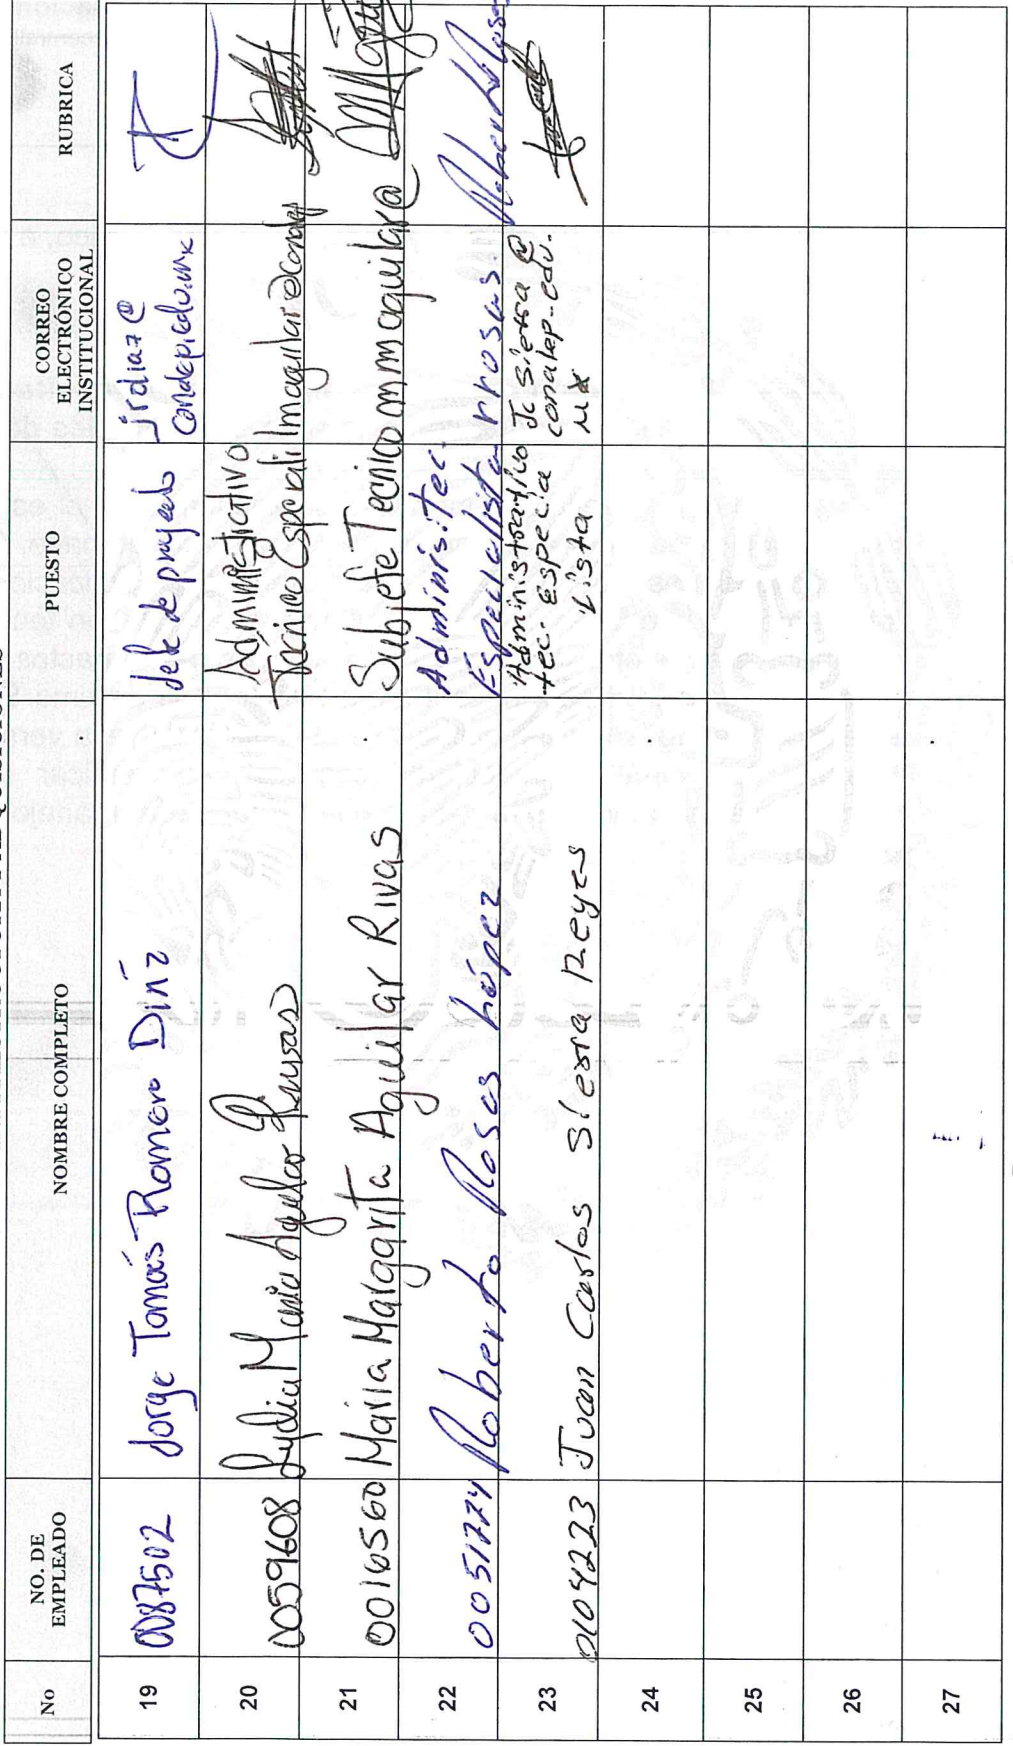 No NO. DE EMPLEADO NOMBRE COMPLETO PUESTO CORREO ELECTRÓNICO INSTITUCIONAL RUBRICA
19 0087502 Jorge Tomás Romero Díaz Jefe de proyecto jrdiaz@
20 0059608 Lydia Maria Administrativo
Técnico Especiali lmaguilar@conalep
21 0016560 María Margarita Aguilar Rivas Subjefe Tecnico mmaguilar@
22 0051774 Roberto Rosas López Administ. Tec.
Especialista rrosas.
23 0104223 Juan Carlos Sierra Reyes Administrativo
tec. especia
lista
Jc sierra @
conalep-edu.
mx
24
25
26
27